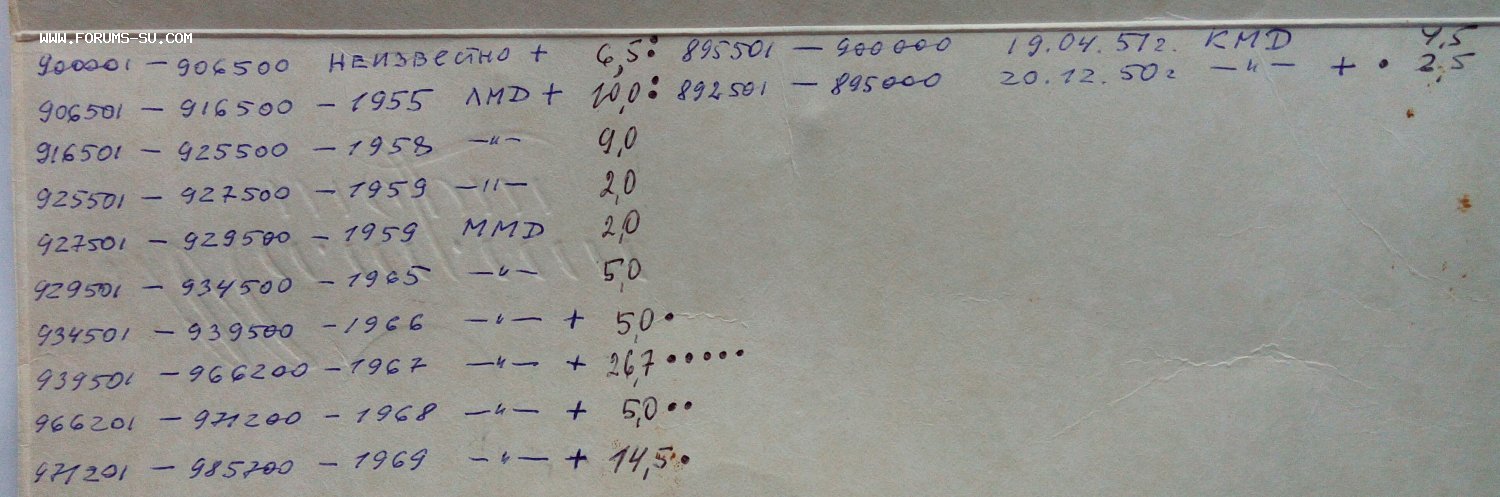 WWW.FORUMS-SU.COM
900001 — 906500 НЕИЗВЕСТНО + 6,5: 895501 — 900000 19.04.51г. КМD 4,5
906501 — 916500 — 1955 ЛМD + 10,0: 892501 — 895000 20.12.50г —"— + • 2,5
916501 — 925500 — 1958 —"— 9,0
925501 — 927500 — 1959 —"— 2,0
927501 — 929500 — 1959 ММD 2,0
929501 — 934500 — 1965 —"— 5,0
934501 — 939500 — 1966 —"— + 5,0 •
939501 — 966200 — 1967 —"— + 26,7 •••••
966201 — 971200 — 1968 —"— + 5,0 ••
971201 — 985700 — 1969 —"— + 14,5 •